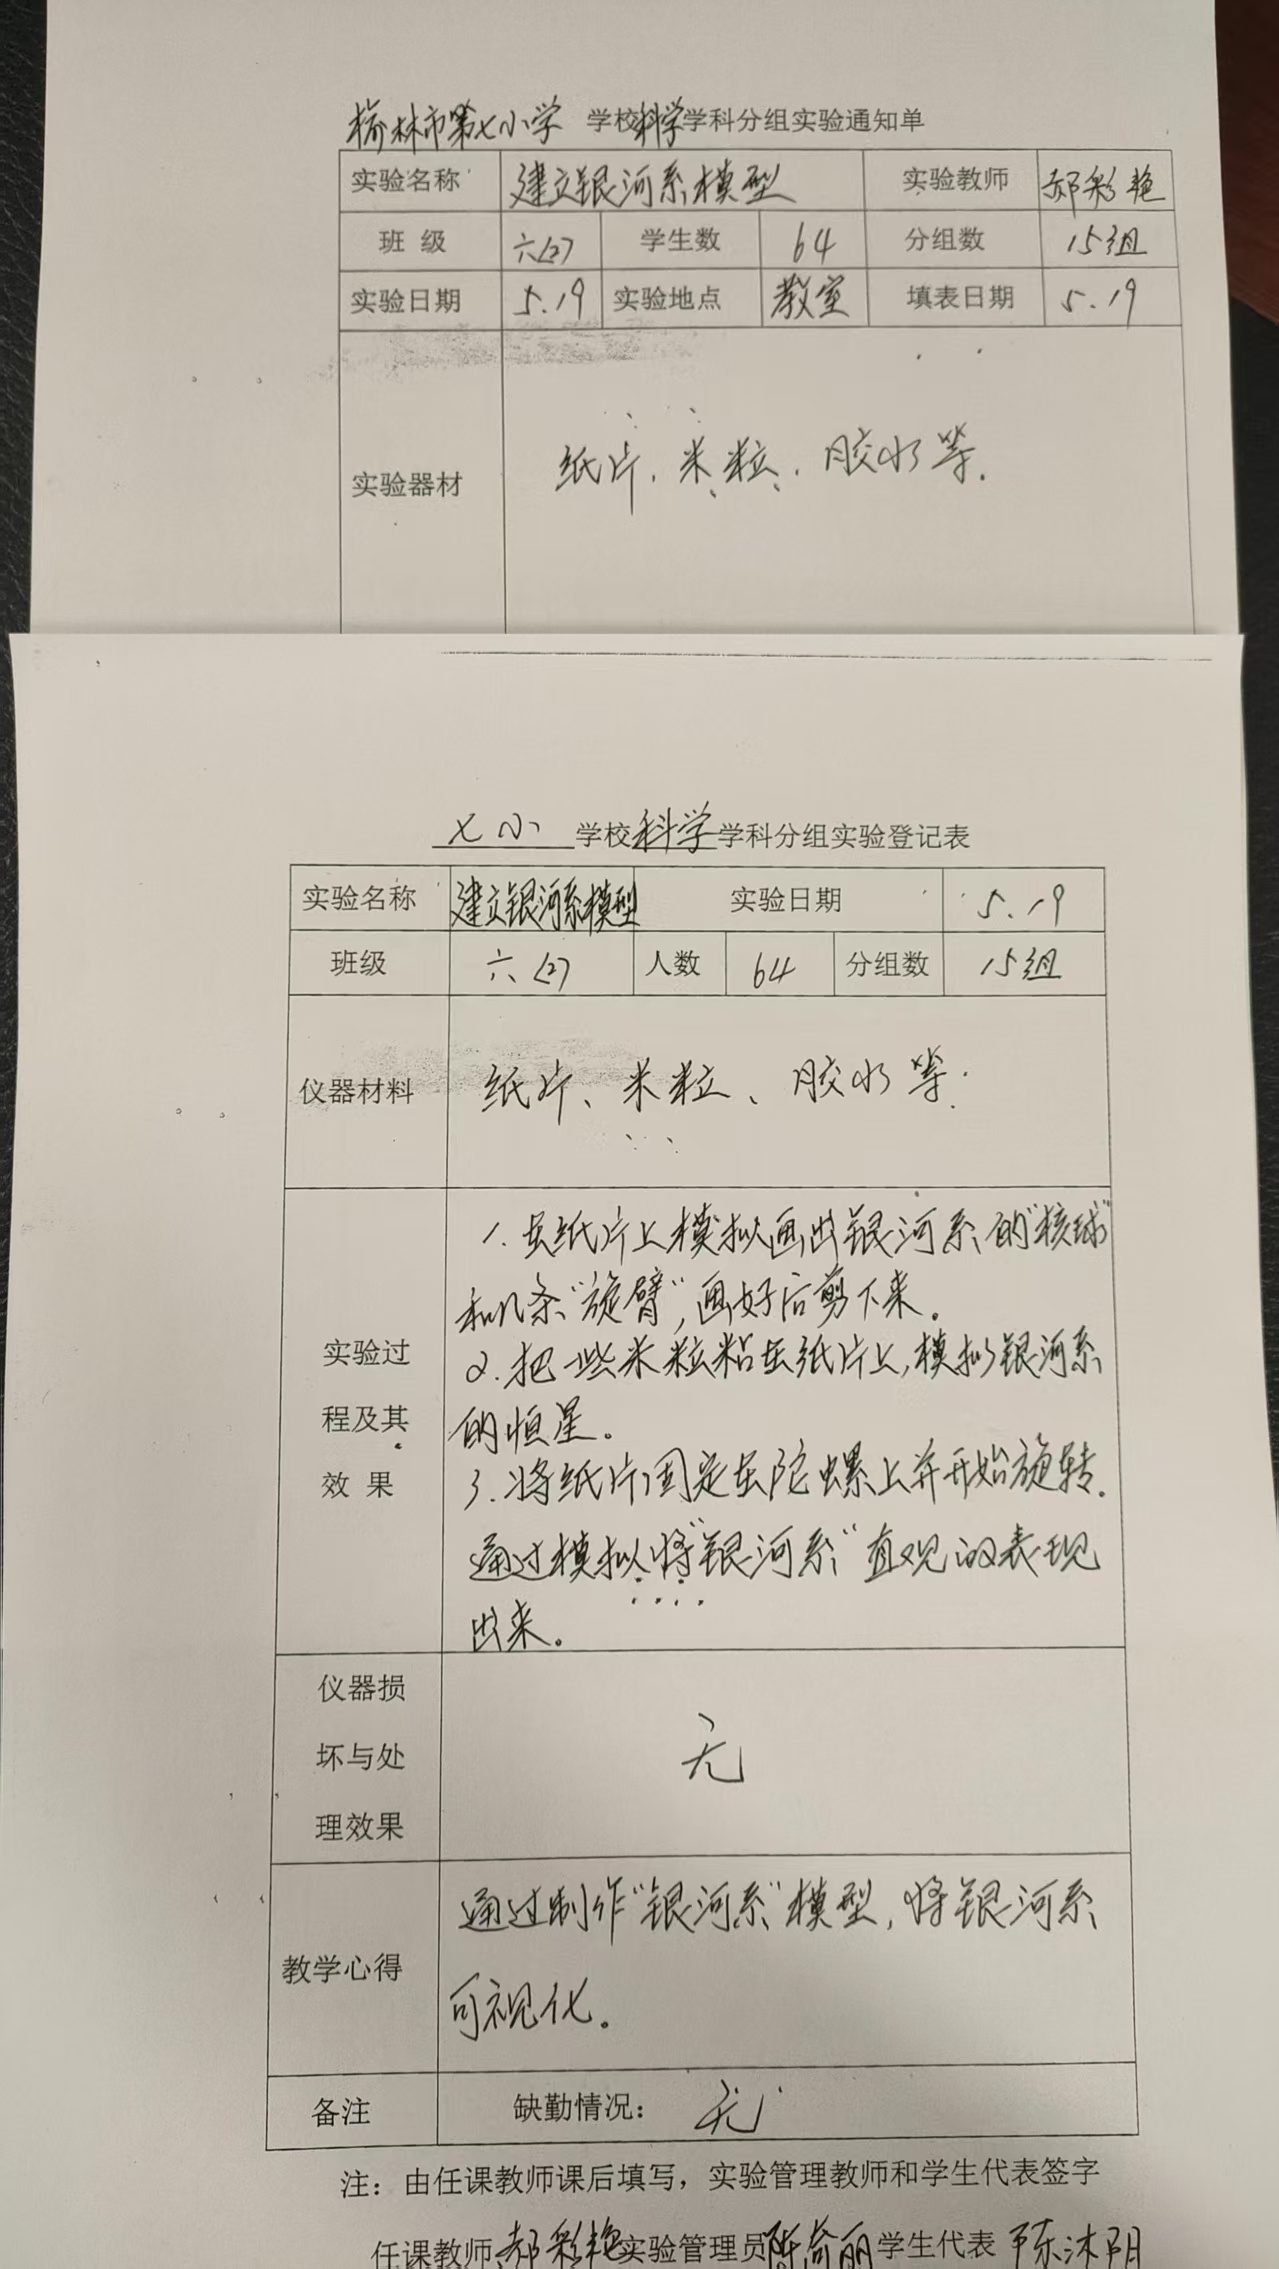 榆林市第七小学 学校科学学科分组实验通知单
实验名称 建立银河系模型 实验教师 郝彩艳
班 级 六(2) 学生数 64 分组数 15组
实验日期 5.19 实验地点 教室 填表日期 5.19
实验器材 纸片、米粒、胶水等.
七小 学校科学学科分组实验登记表
实验名称 建立银河系模型 实验日期 5.19
班级 六(2) 人数 64 分组数 15组
仪器材料 纸片、米粒、胶水等.
1.在纸片上模拟画出银河系的“核球”
和几条“旋臂”,画好后剪下来。
实验过 2.把一些米粒粘在纸片上,模拟银河系
程及其 的恒星。
效 果 3.将纸片固定在陀螺上并开始旋转.
通过模拟将“银河系”直观的表现
出来。
仪器损
坏与处 无
理效果
通过制作“银河系”模型,将银河系
教学心得
可视化。
备注 缺勤情况: 无
注:由任课教师课后填写,实验管理教师和学生代表签字
任课教师 郝彩艳 实验管理员 学生代表